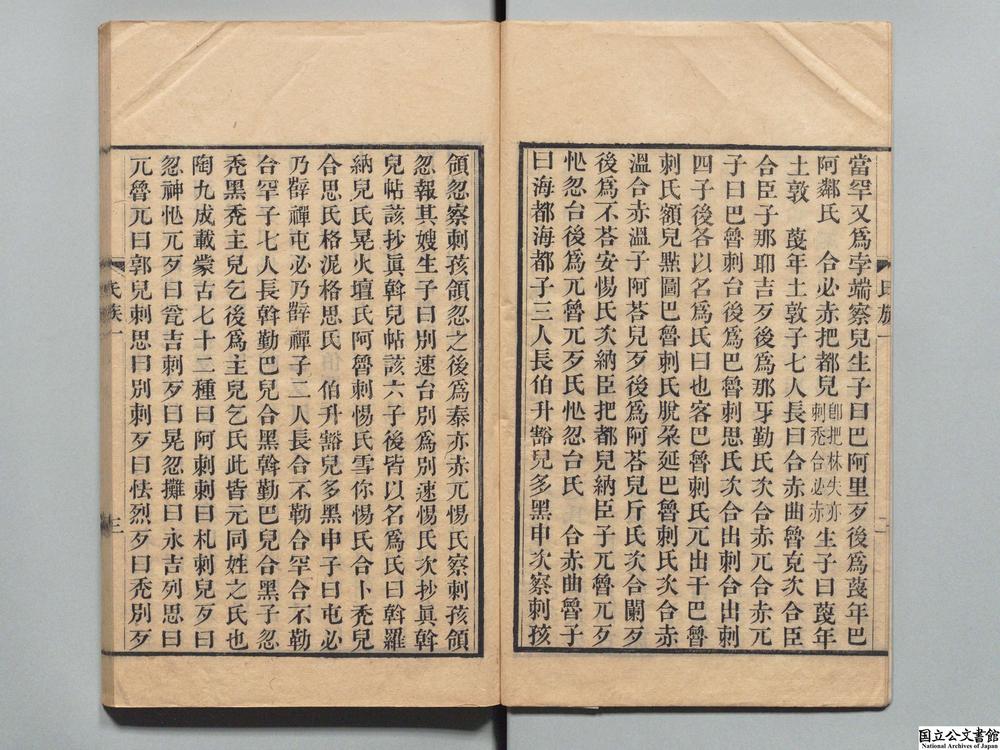 當罕又爲孛端察兒生子曰巴阿里歹後爲蔑年巴
阿鄰氏　合必赤把都兒卽把林失亦刺禿合必赤生子曰蔑年
土敦　蔑年土敦子七人長曰合赤曲魯克次合臣
合臣子那耶吉歹後爲那牙勤氏次合赤兀合赤兀
子曰巴魯刺台後爲巴魯刺思氏次合出刺合出刺
四子後各以名爲氏曰也客巴魯刺氏兀出干巴魯
刺氏額兒㸃圖巴魯刺氏脫朶延巴魯刺氏次合赤
溫合赤溫子阿荅兒歹後爲阿荅兒斤氏次合闌歹
後爲不荅安惕氏次納臣把都兒納臣子兀魯兀歹
忙忽台後爲兀魯兀歹氏忙忽台氏　合赤曲魯子
曰海都海都子三人長伯升豁兒多黑申次察刺孩
領忽察刺孩領忽之後爲泰亦赤兀惕氏察刺孩領
忽報其嫂生子曰別速台別爲別速惕氏次抄眞斡
兒帖該抄眞斡兒帖該六子後皆以名爲氏曰斡羅
納兒氏晃火壇氏阿魯刺惕氏雪你惕氏合卜禿兒
合思氏格泥格思氏　伯升豁兒多黑申子曰屯必
乃薛禪屯必乃薛禪子二人長合不勒合罕合不勒
合罕子七人長斡勤巴兒合黑斡勤巴兒合黑子忽
禿黑禿主兒乞後爲主兒乞氏此皆元同姓之氏也
陶九成載蒙古七十二種曰阿刺刺曰札刺兒歹曰
忽神忙兀歹曰瓮吉刺歹曰晃忽攤曰永吉列思曰
兀魯兀曰郭兒刺思曰別刺歹曰怯烈歹曰禿別歹
氏族一
三
国立公文書館
National Archives of Japan